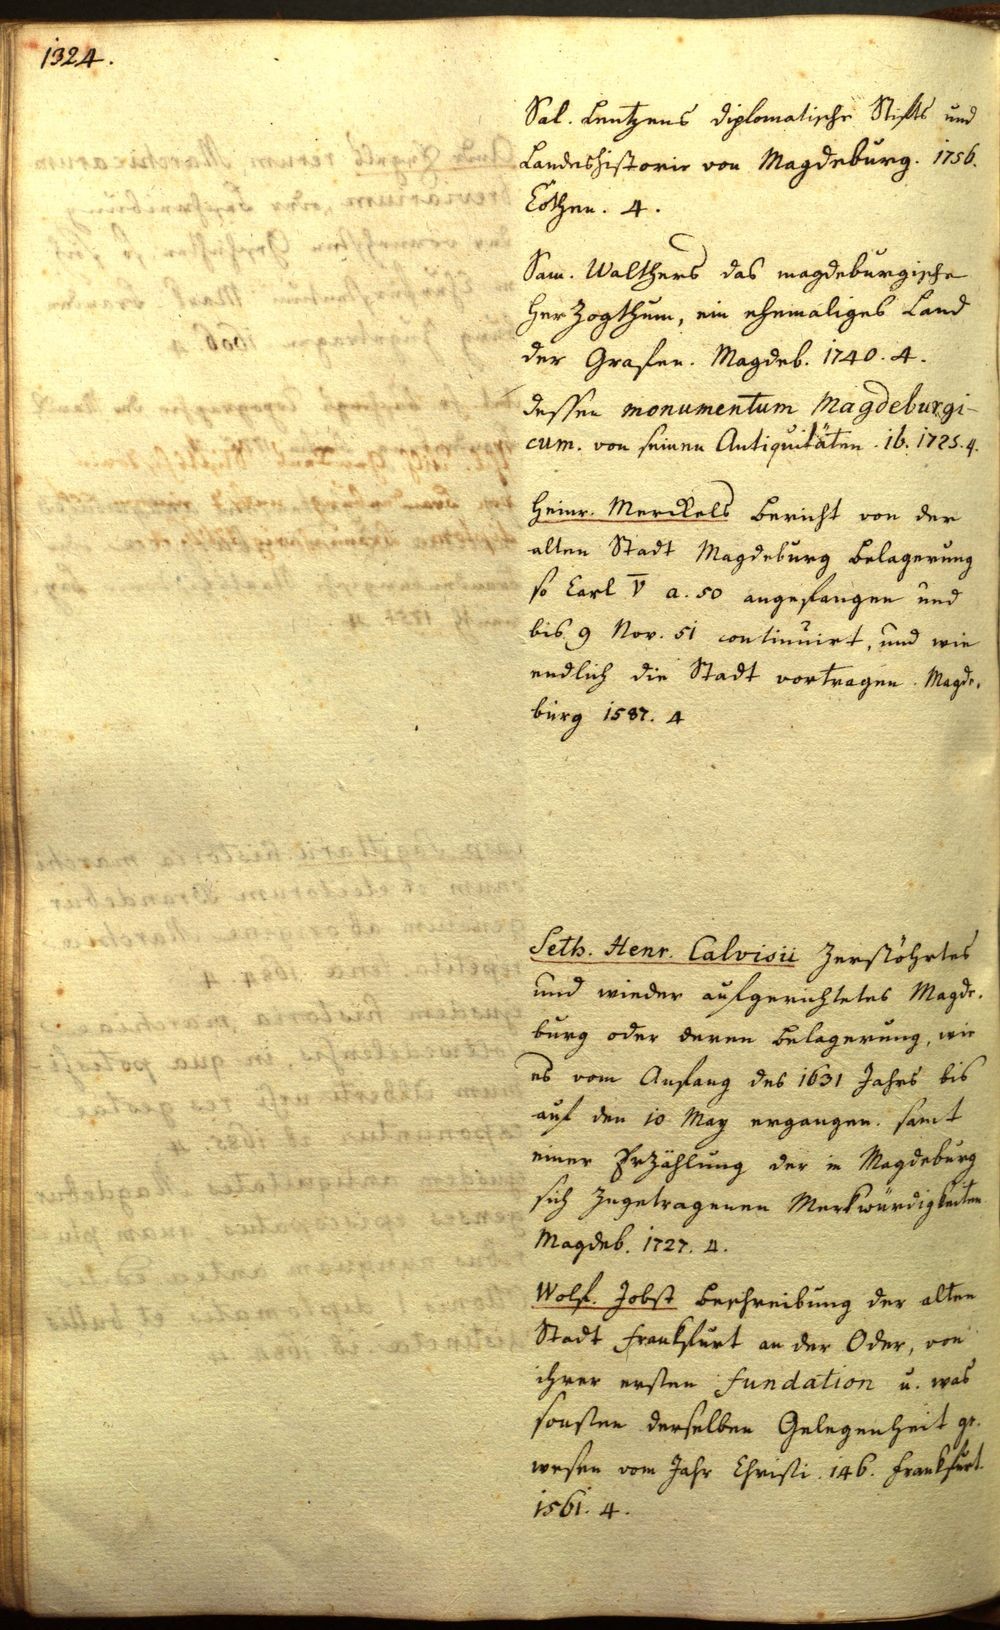 1324.
Sal. Lentzens diplomatische Stifts und
Landeshistorie von Magdeburg. 1756.
Cöthen. 4.
Sam. Walthers das magdeburgische
Herzogthum, ein ehemaliges Land
der Grafen. Magdeb. 1740. 4.
dessen monumentum Magdeburgi-
cum. von seinen Antiquitäten. ib. 1725. 4.
Heinr. Merckels Bericht von der
alten Stadt Magdeburg Belagerung
so Carl V a. 50 angefangen und
bis 9 Nov. 51 continuirt, und wie
endlich die Stadt vortragen. Magde-
burg 1587. 4
Seth. Henr. Calvisii Zerstöhrtes
und wieder aufgerichtetes Magde-
burg oder deren Belagerung, wie
es vom Anfang des 1631 Jahrs bis
auf den 10 May ergangen. samt
einer Erzählung der in Magdeburg
sich zugetragenen Merkwürdigkeiten
Magdeb. 1727. 4.
Wolf. Jobst Beschreibung der alten
Stadt Frankfurt an der Oder, von
ihrer ersten fundation u. was
sonsten derselben Gelegenheit ge-
wesen vom Jahr Christi. 146. Frankfurt
1561. 4.